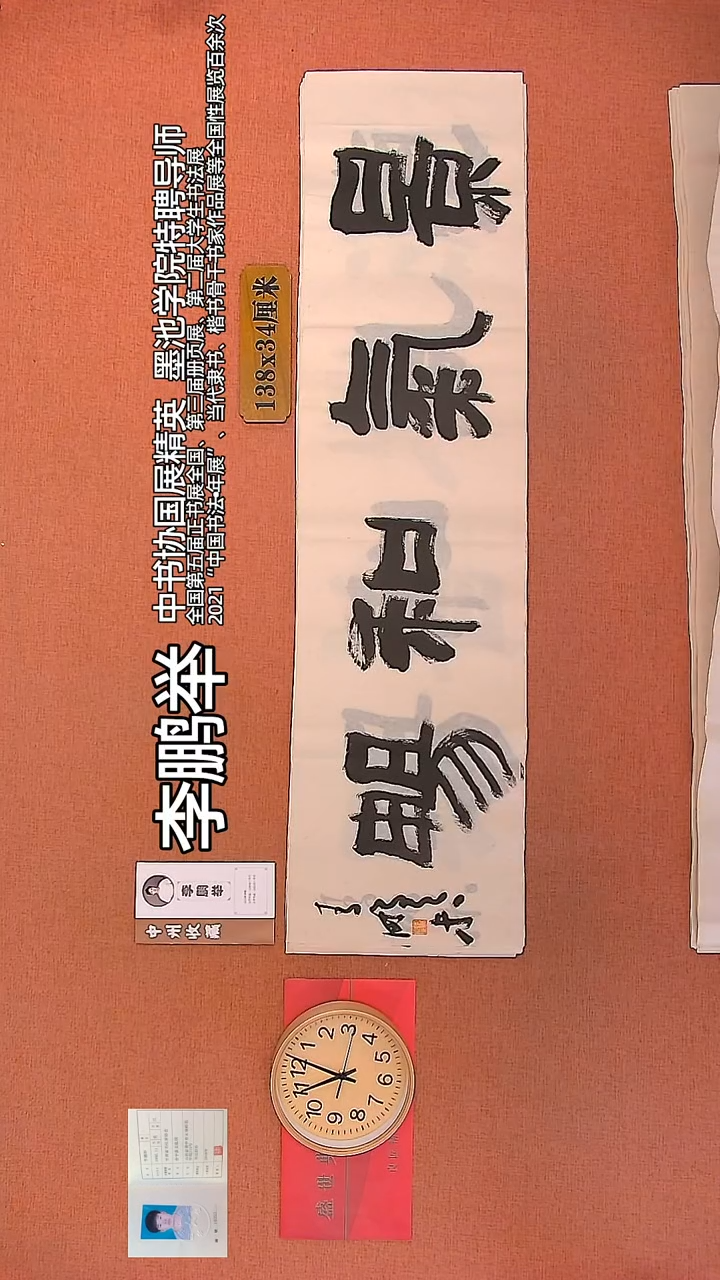 李鹏举
中书协国展精英 墨池学院特聘导师
全国第五届正书展全国、第三届册页展、第二届大学生书法展
2021“中国书法·年展”、当代隶书、楷书骨干书家作品展等全国性展览百余次
李鹏举
中州收藏
138x34厘米
景氣和暢
12
1
2
3
4
5
6
7
8
9
10
11
盛世